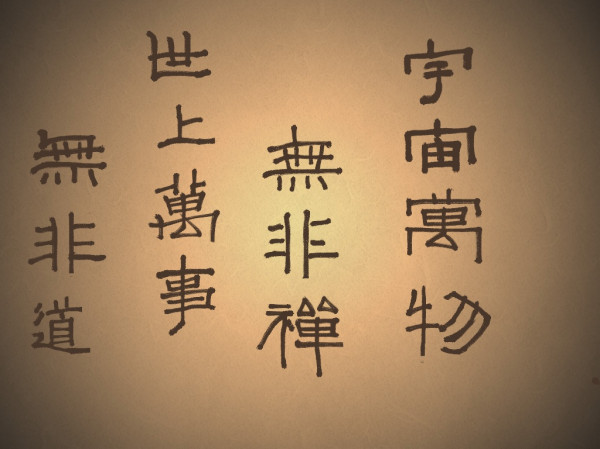 宇宙寓物
無非禪
世上萬事
無非道